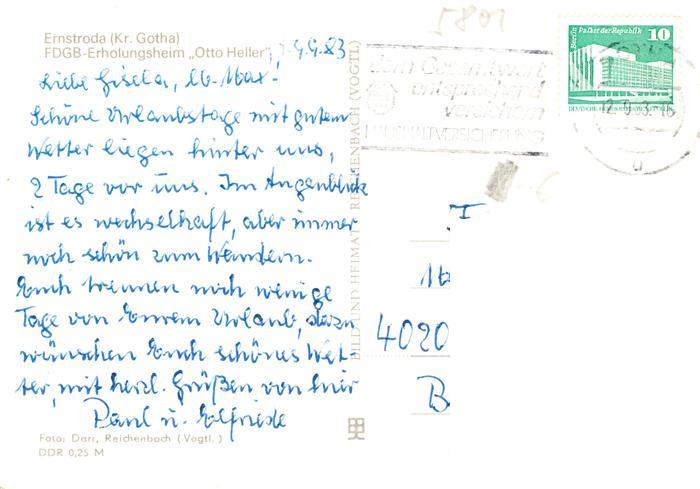 Ernstroda (Kr. Gotha)
FDGB-Erholungsheim „Otto Heller“, 9.9.83
Liebe Gisela, lb. Max.
Schöne Urlaubstage mit gutem
Wetter liegen hinter uns,
2 Tage vor uns. Im Augenblick
ist es wechselhaft, aber immer
noch schön zum Wandern.
Euch trennen noch wenige
Tage von Eurem Urlaub, dazu
wünschen Euch schönes Wet-
ter, mit herzl. Grüßen von hier
Paul u. Elfriede
Foto: Darr, Reichenbach (Vogtl.)
DDR 0,25 M
BILD UND HEIMAT REICHENBACH (VOGTL)
5801
dem Gesamtwert
entsprechend
versichern
HAUSHALTVERSICHERUNG
Berlin Palast der Republik 10
12.9.83-16
4020
B